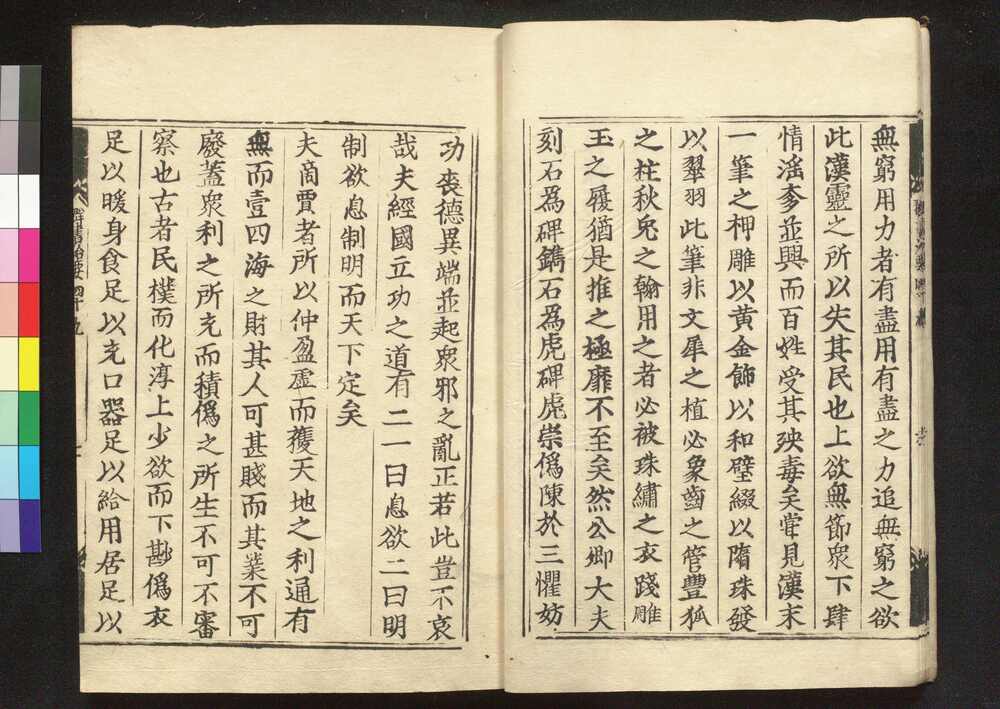 無窮用力者有盡用有盡之力追無窮之欲
此漢靈之所以失其民也上欲無節衆下肆
情滛奓並興而百姓受其殃毒矣甞見漢末
一筆之柙雕以黄金飾以和璧綴以隋珠發
以翠羽此筆非文犀之植必象齒之管豐狐
之柱秋兔之翰用之者必被珠繡之衣踐雕
玉之履猶是推之極靡不至矣然公卿大夫
刻石為碑鐫石為虎碑虎崇偽陳於三懼妨
功喪德異端並起衆邪之亂正若此豈不哀
哉夫經國立功之道有二一曰息欲二曰明
制欲息制明而天下定矣
夫商賈者所以仲盈虚而獲天地之利通有
無而壹四海之財其人可甚賤而其業不可
廢蓋衆利之所充而積偽之所生不可不審
察也古者民樸而化淳上少欲而下尠偽衣
足以暖身食足以充口器足以給用居足以
群書治要四十九